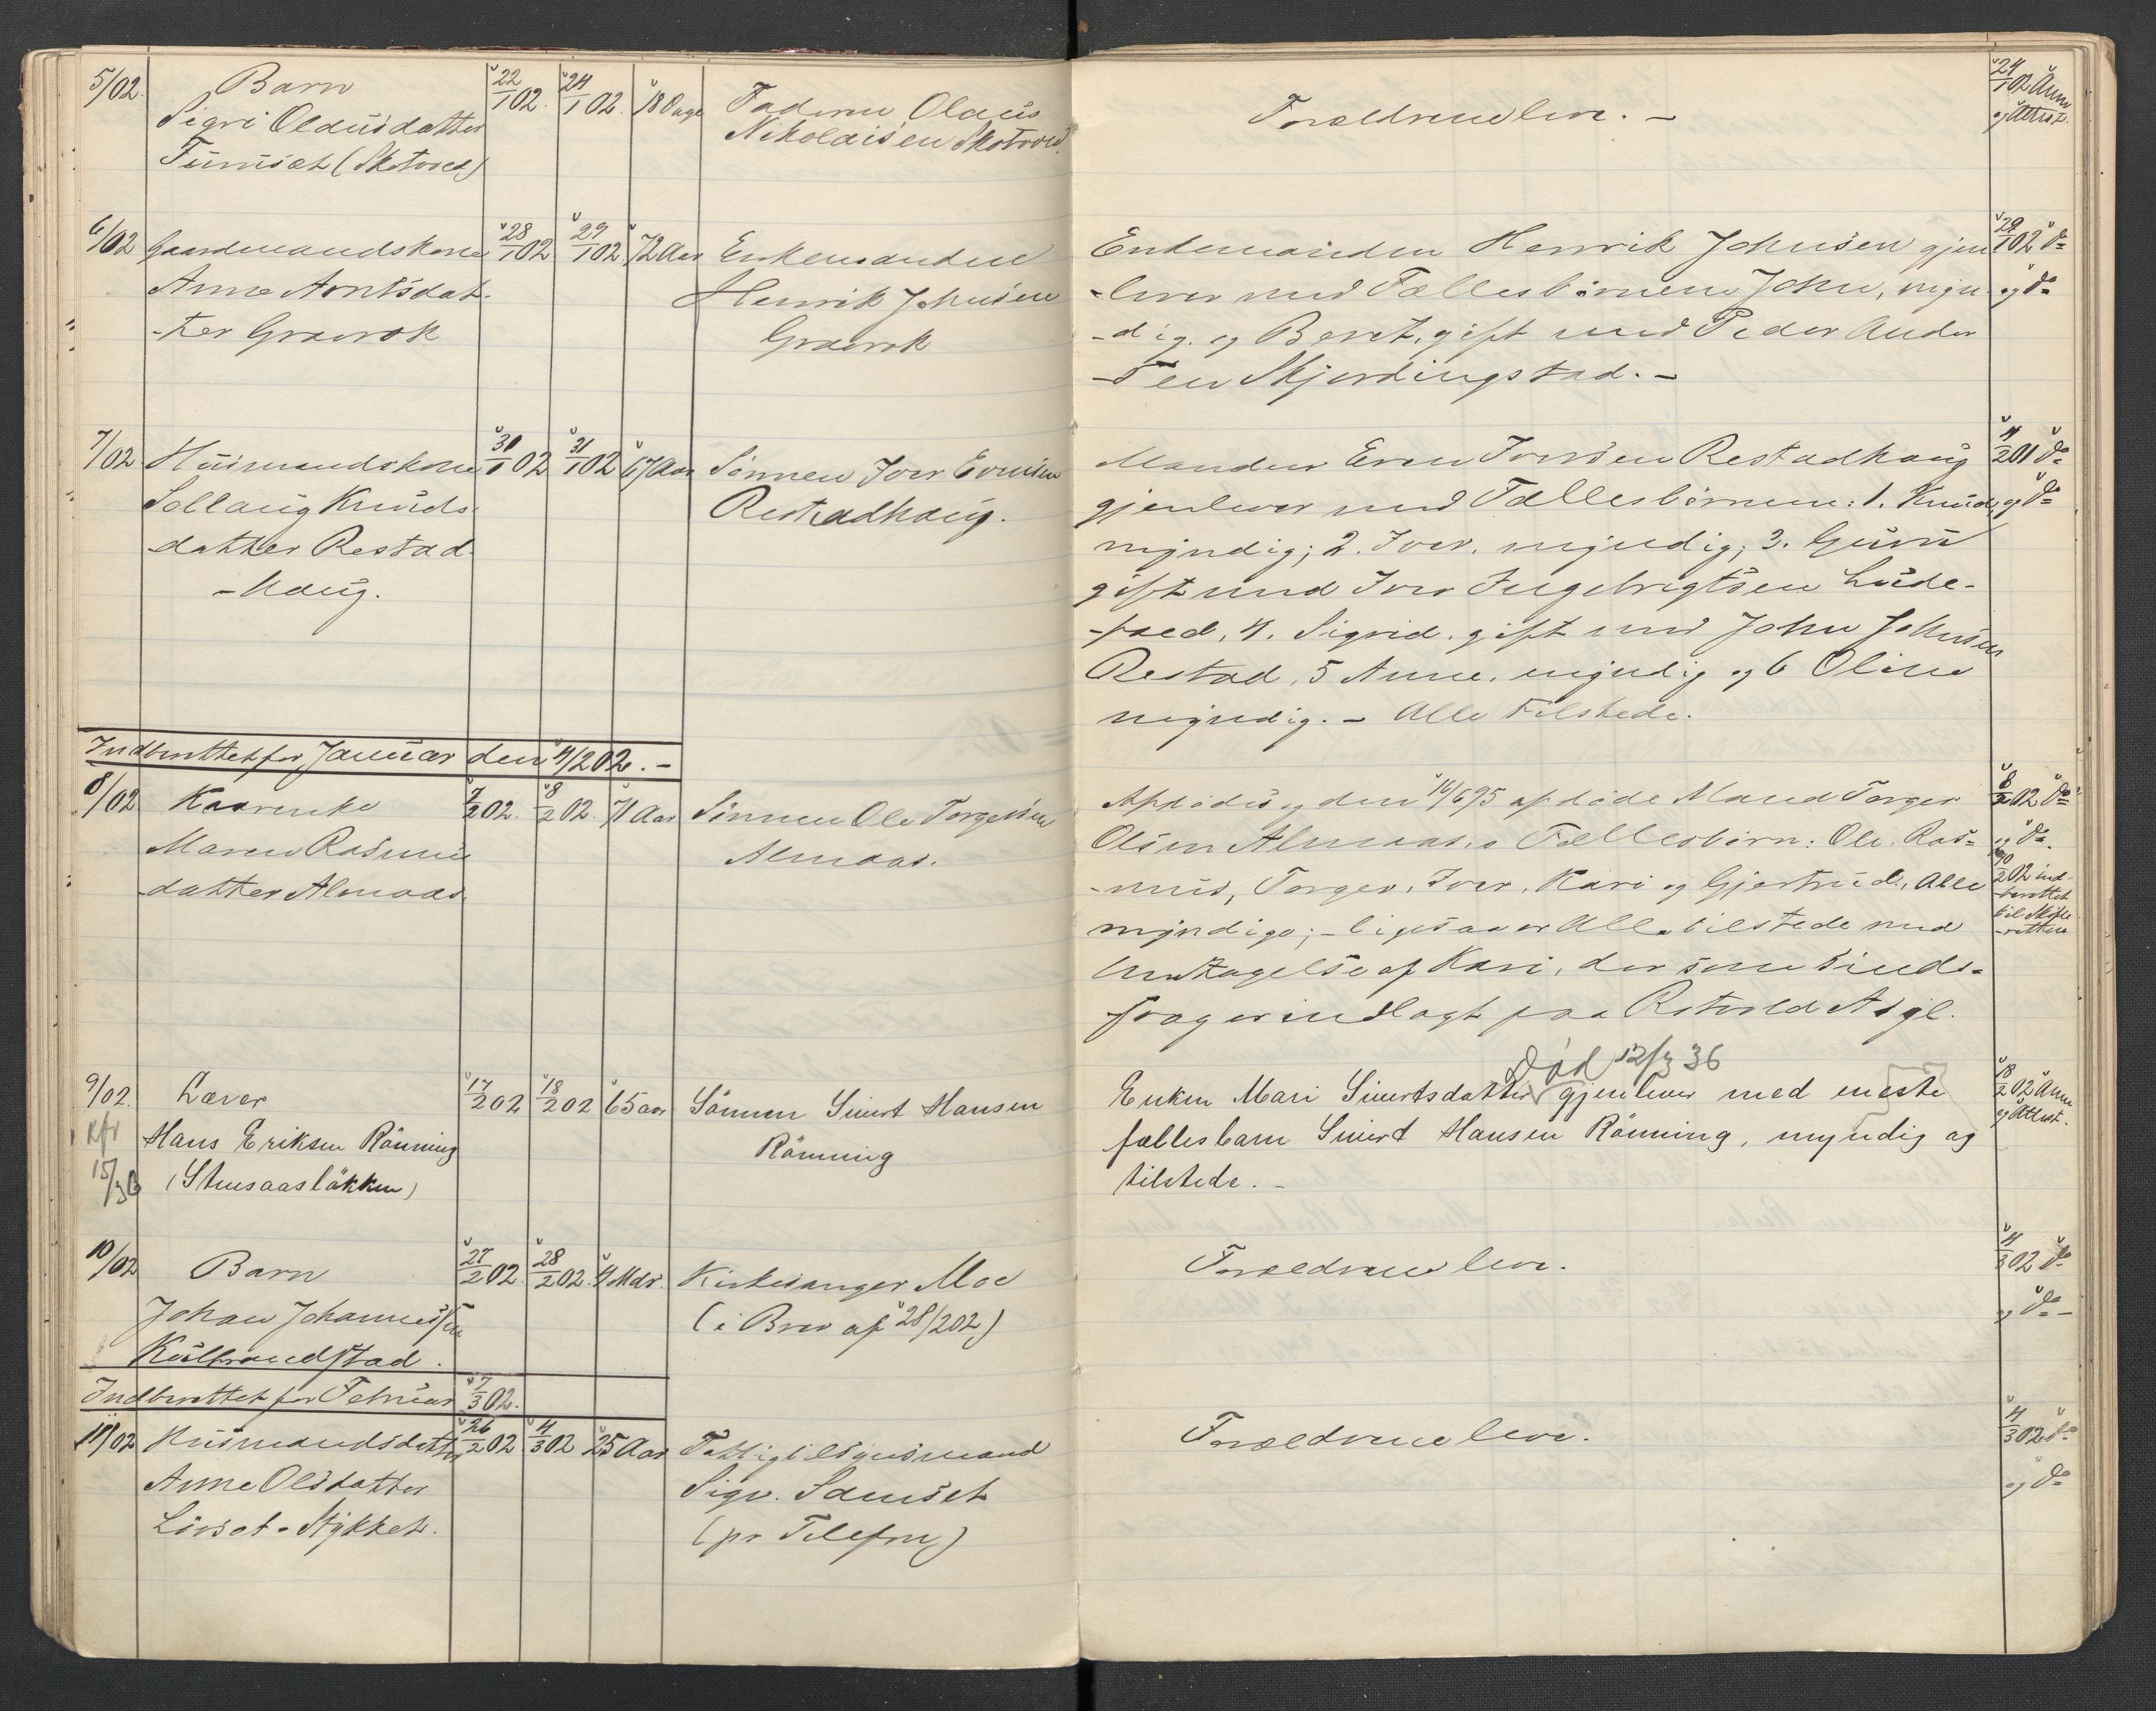 5/02.
Barn
Sigri Olausdatter
Furuset (Skotvold)
22/1 02.
24/1 02.
18 Dage
Faderen Olaus
Nikolaisen Skotvold.
Forældrene leve. -
24/1 02 Anm
og Attest.
6/02
Gaardmandskone
Anne Arntsdat-
-ter Gravrok
28/1 02
29/1 02
72 Aar
Enkemanden
Henrik Johnsen
Gravrok
Enkemanden Henrik Johnsen gjen-
-lever med Fællesbørnene John, myn-
-dig. og Beret, gift med Peder Ander
-sen Skjerdingstad. -
29/1 02 do
og do
7/02
Husmandskone
Sollaug Knuds-
-datter Restad-
-haug.
30/1 02
31/1 02
67 Aar
Sønnen Iver Evensen
Restadhaug.
Manden Even Iversen Restadhaug
gjenlever med Fællesbørnene: 1. Knud,
myndig; 2. Iver, myndig; 3. Guru
gift med Iver Ingebrigtsen Lade-
4. Sigrid. gift med John Johnsen
Restad, 5 Anne, myndig og 6 Oline
myndig. - Alle tilstede.
4/2 01 do
og do
Indberettet for Januar den 4/2 02. -
8/02
Kaarenke
Maren Rasmus
datter Almaas.
7/2 02.
8/2 02.
71 Aar
Sønnen Ole Torgersen
Almaas.
Afdøde og den 16/6 95 afdøde Mand Torger
Olsen Almaas,s Fællesbørn: Ole, Ras-
-mus, Torger, Iver, Kari og Gjertrud, Alle
myndige; - ligesaa er Alle tilstede med
Undtagelse af Kari, der som Sinds-
-svag er indlagt paa Rotvold Asyl.
8/2 02 do
og do.
10/2 02 ind-
-berettet
til Skifte
-retten
9/02.
Kfr
15/36
Læver
Hans Eriksen Rönning
(Stensaaslökken)
17/2 02
18/2 02
65 aar
Sönnen Sivert Hansen
Rönning
Död 12/3 36
Enken Mari Sivertsdatter gjenlever med eneste
fællesbarn Sivert Hansen Rönning, myndig og
tilstede. -
18/2 02 Anm
og Attest.
10/02
Barn
Johan Johannessen
Kulbrandstad.
27/2 02.
28/2 02.
4 Mdr.
Kirkesanger Moe
(i Brev af 28/2 02)
Forældrene leve.
4/3 02 do
og do -
Indberettet for Februar 7/3 02.
11/02
Husmandsdatter
Anne Olsdatter
Løvset-Stykket.
26/2 02
4/3 02
25 Aar
Fattigtilsynsmand
Sigv. Samset
(pr Telefon)
Forældrene leve.
4/3 02 do
og do